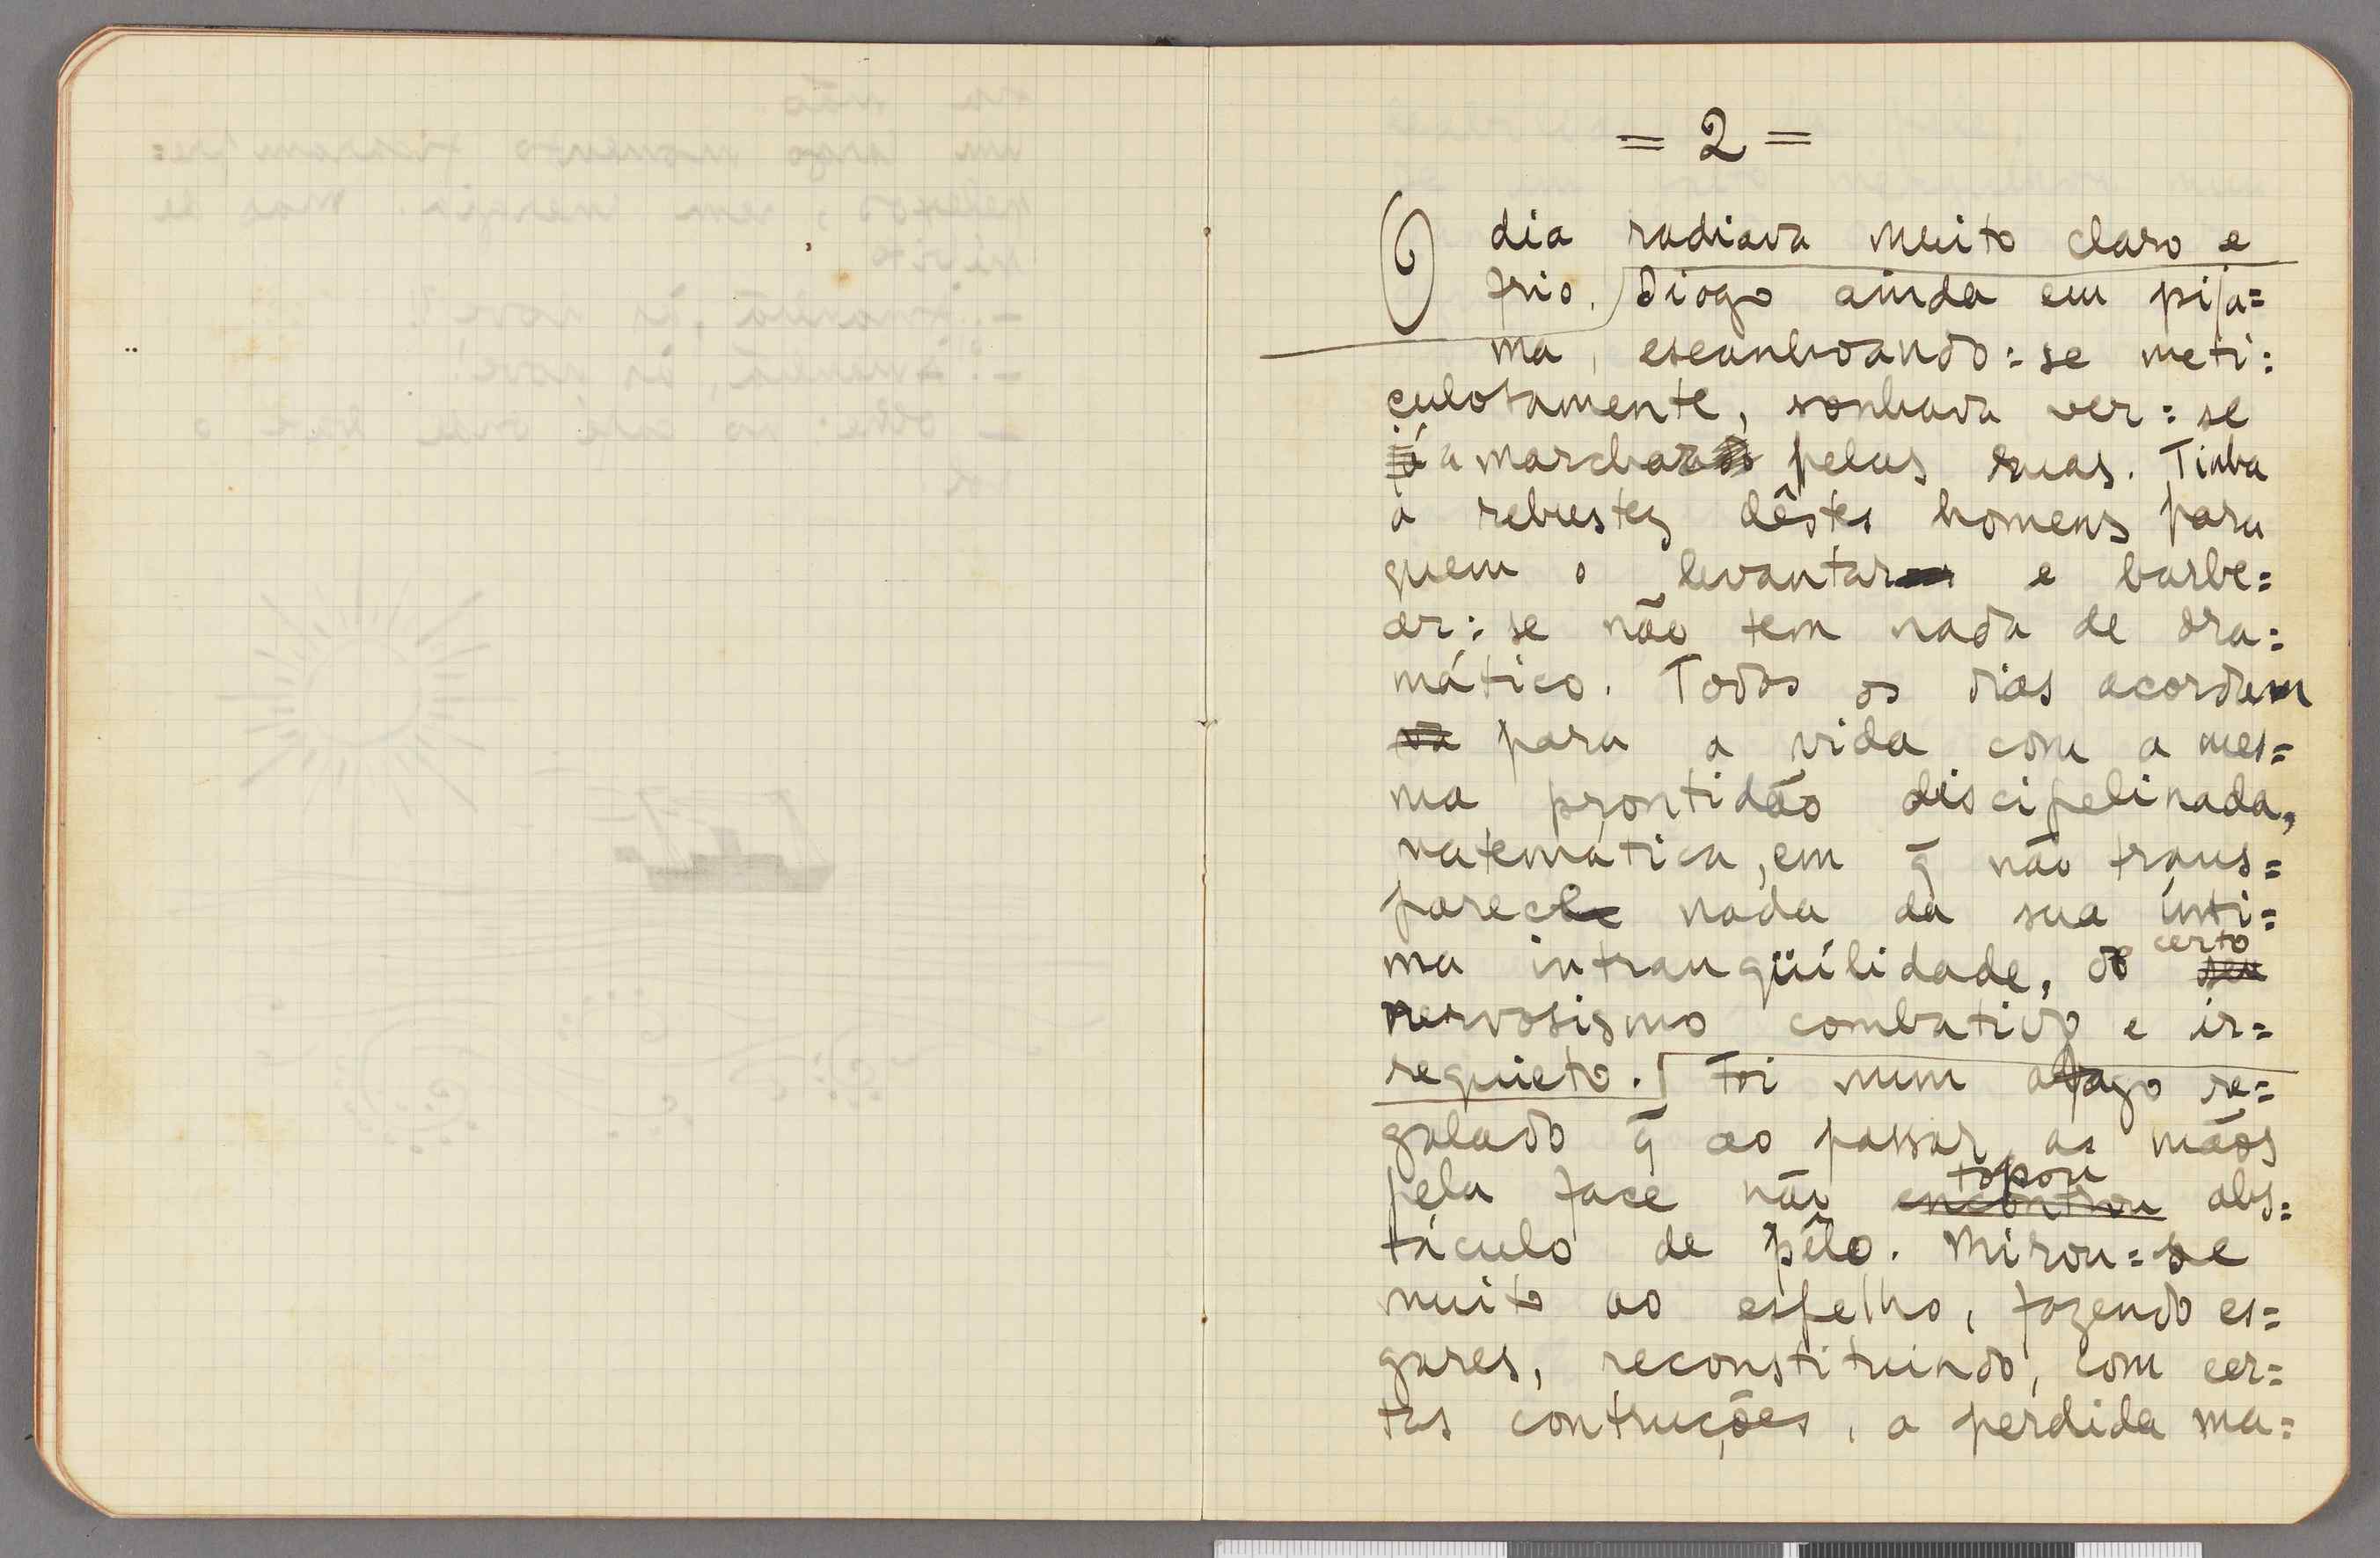 = 2 =
O dia radiava muito claro e
frio. Diogo ainda em pija=
ma, escanhoando=se meti=
culosamente, sonhava ver=se
já a marchar pelas ruas. Tinha
a rebustez dêstes homens para
quem o levantar e barbe=
ar=se não tem nada de dra=
mático. Todos os dias acordam
va para a vida com a mes=
ma prontidão discipelinada,
matemática, em q̄ não trans=
parece nada da sua ínti=
ma intranqüílidade, do certo
seu
nervosismo combativo e ir=
requieto. Foi num afago re=
galado q̄ ao passar as mãos
topou
pela face não encontrou obs=
táculo de pêlo. Mirou=se
muito ao espelho, fazendo es=
gares, reconstituindo, com cer=
tas contruções, a perdida ma=